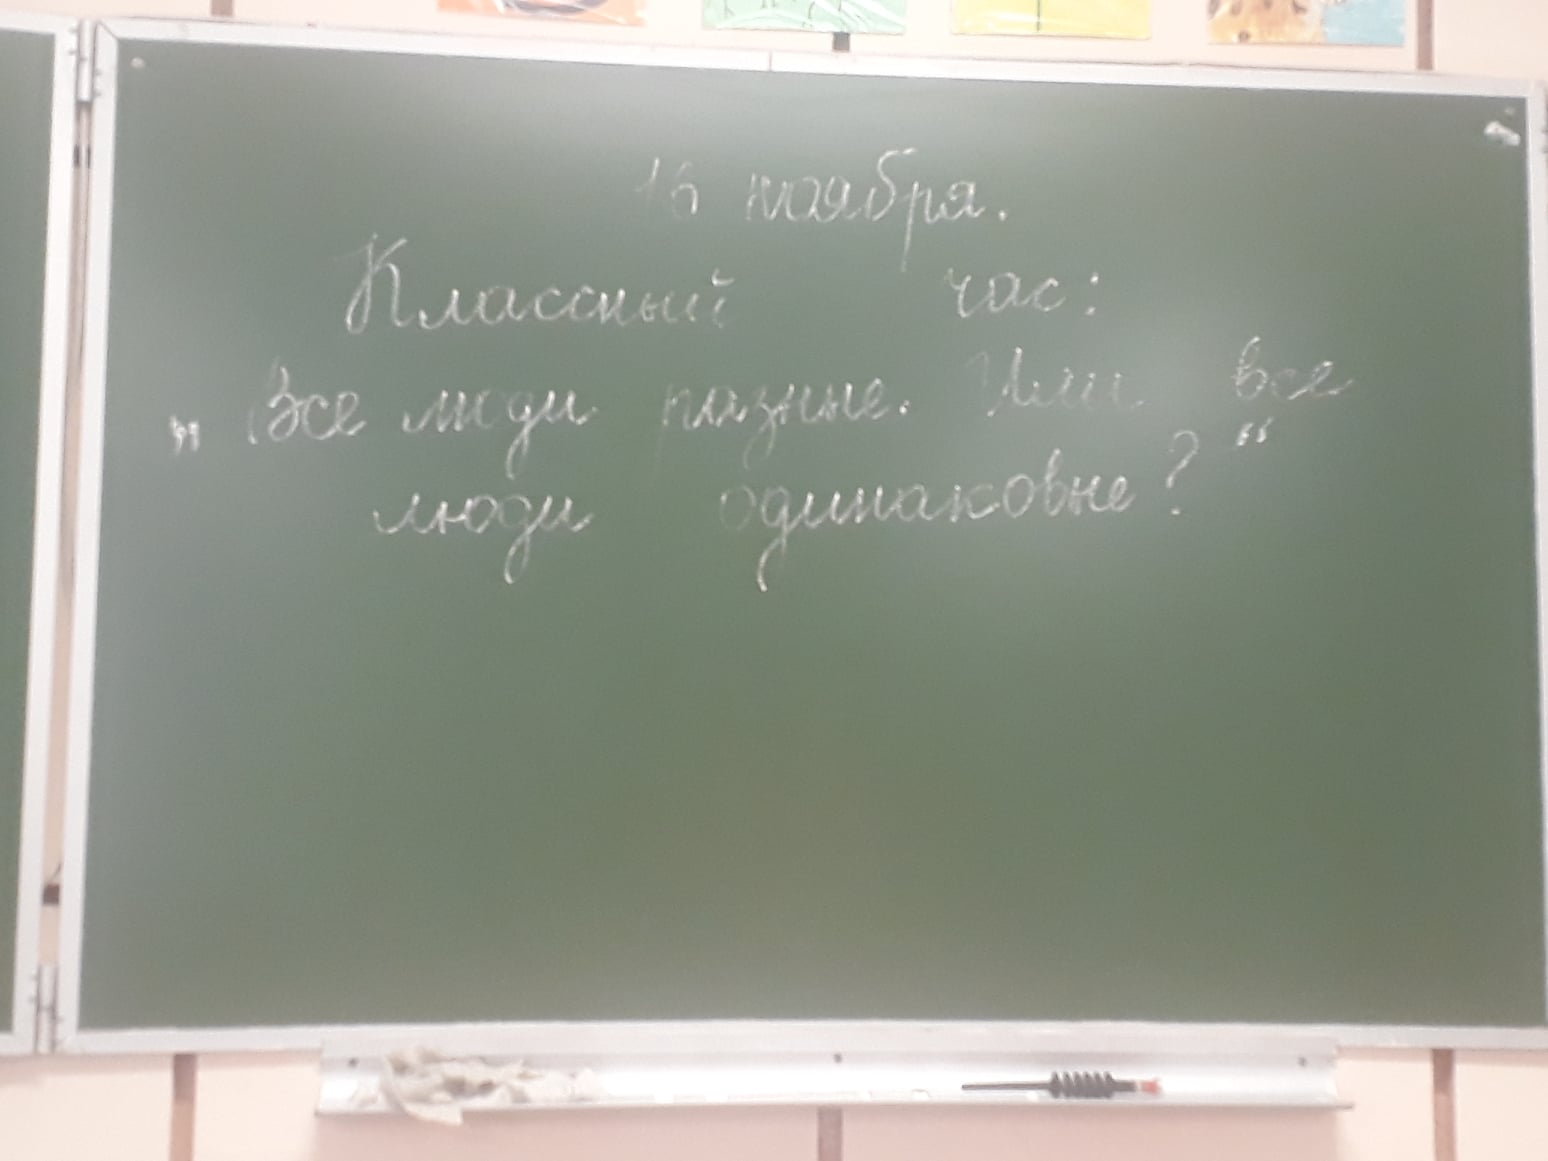 16 ноября.
Классный час:
„Все люди разные. Или все
люди одинаковые?“